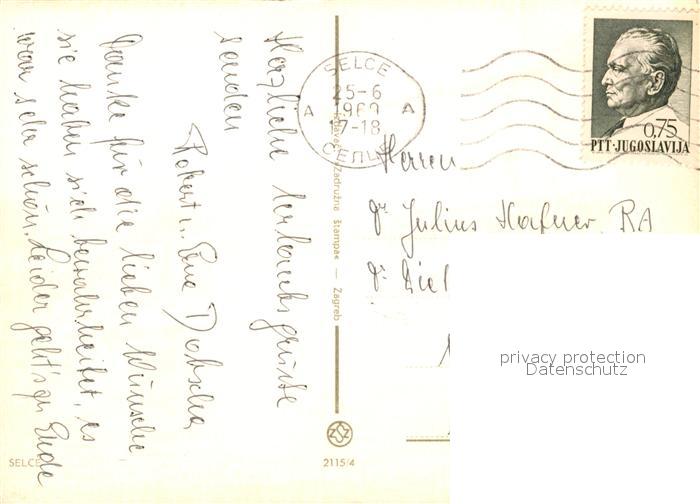 Herzliche Urlaubsgrüße
senden
Robert u. Erna
Danke für die lieben Wünsche
sie haben sich bewahrheitet, es
war sehr schön. Leider geht's zu Ende
SELCE
25-6
1969
17-18
A A
СЕЛЦЕ
0,75
PTT·JUGOSLAVIJA
Herren
Dr. Julius Hafner RA
Dr.
»Zadružna štampa« — Zagreb
privacy protection
Datenschutz
SELCE
2115/4